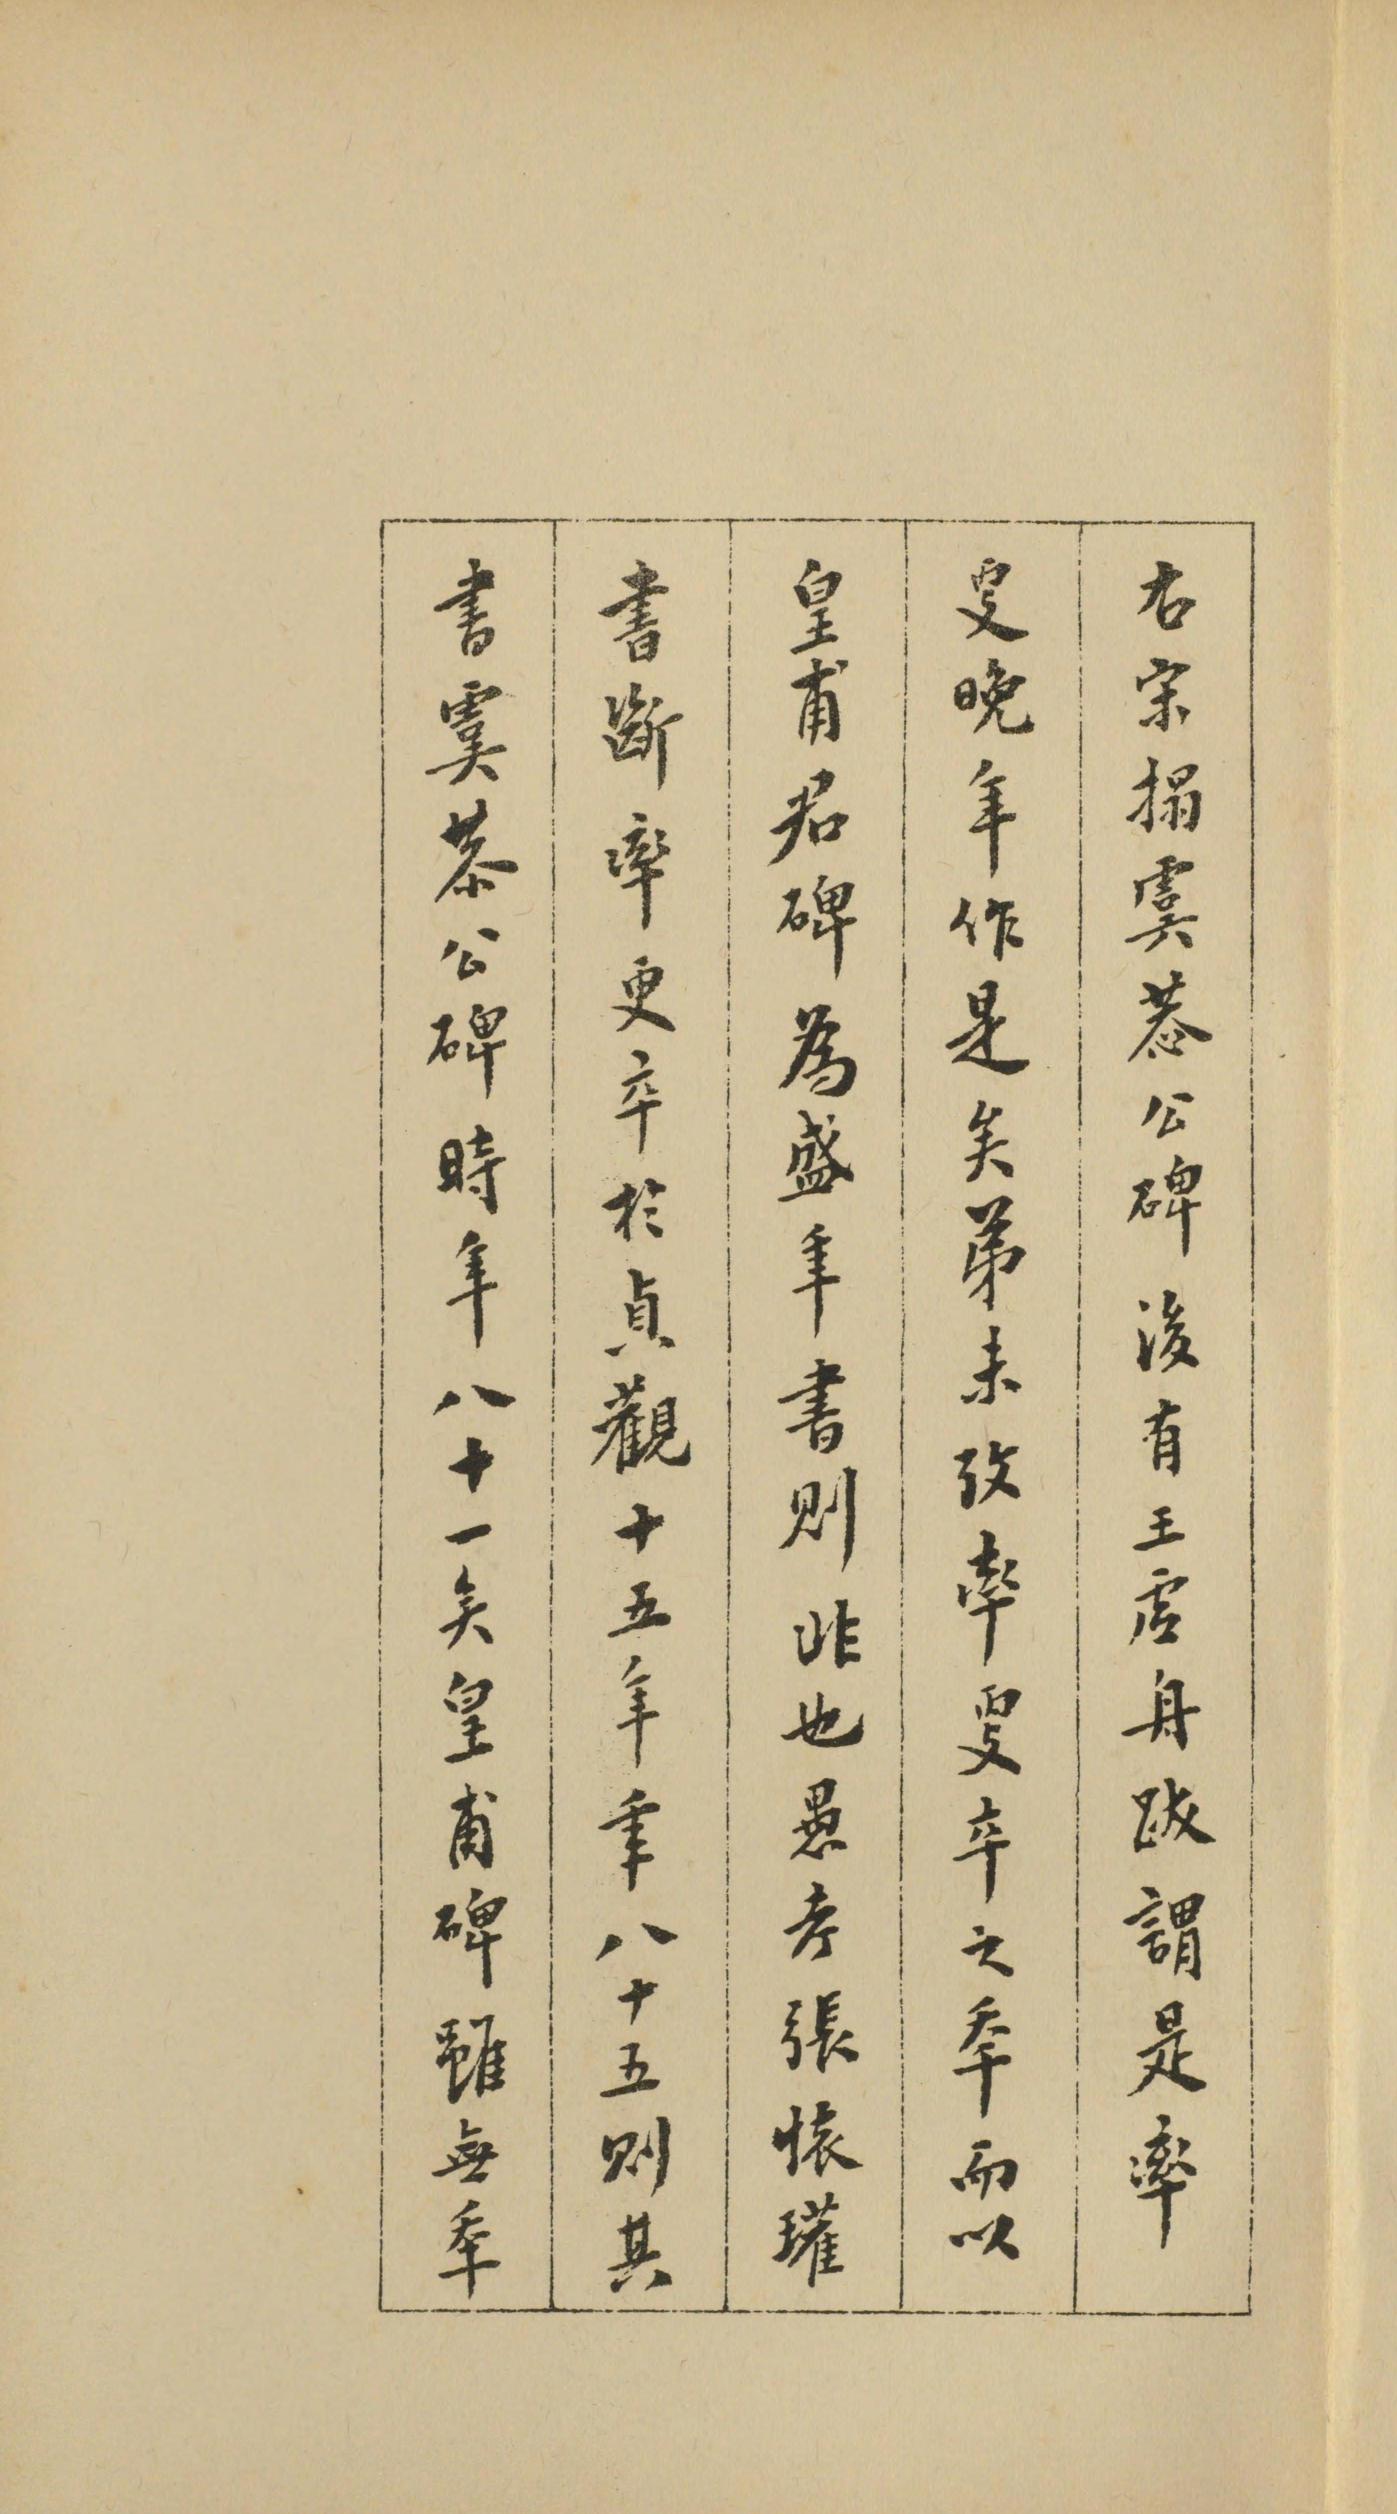 右宋搨虞恭公碑後有王虛舟跋謂是率
更晚年作是矣第未攷率更卒之年而以
皇甫君碑為盛年書則非也愚考張懷瓘
書斷率更卒於貞觀十五年年八十五則其
書虞恭公碑時年八十一矣皇甫碑雖無年